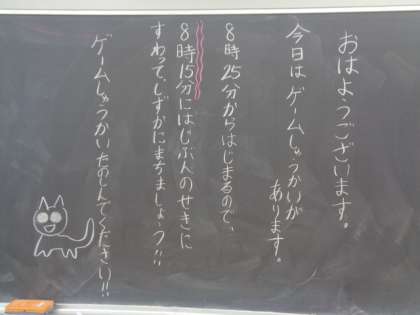 おはようございます。
今日は ゲームしゅうかいが
あります。
8時25分からはじまるので、
8時15分にはじぶんのせきに
すわって、しずかにまちましょう!!
ゲームしゅうかいたのしんでください!!